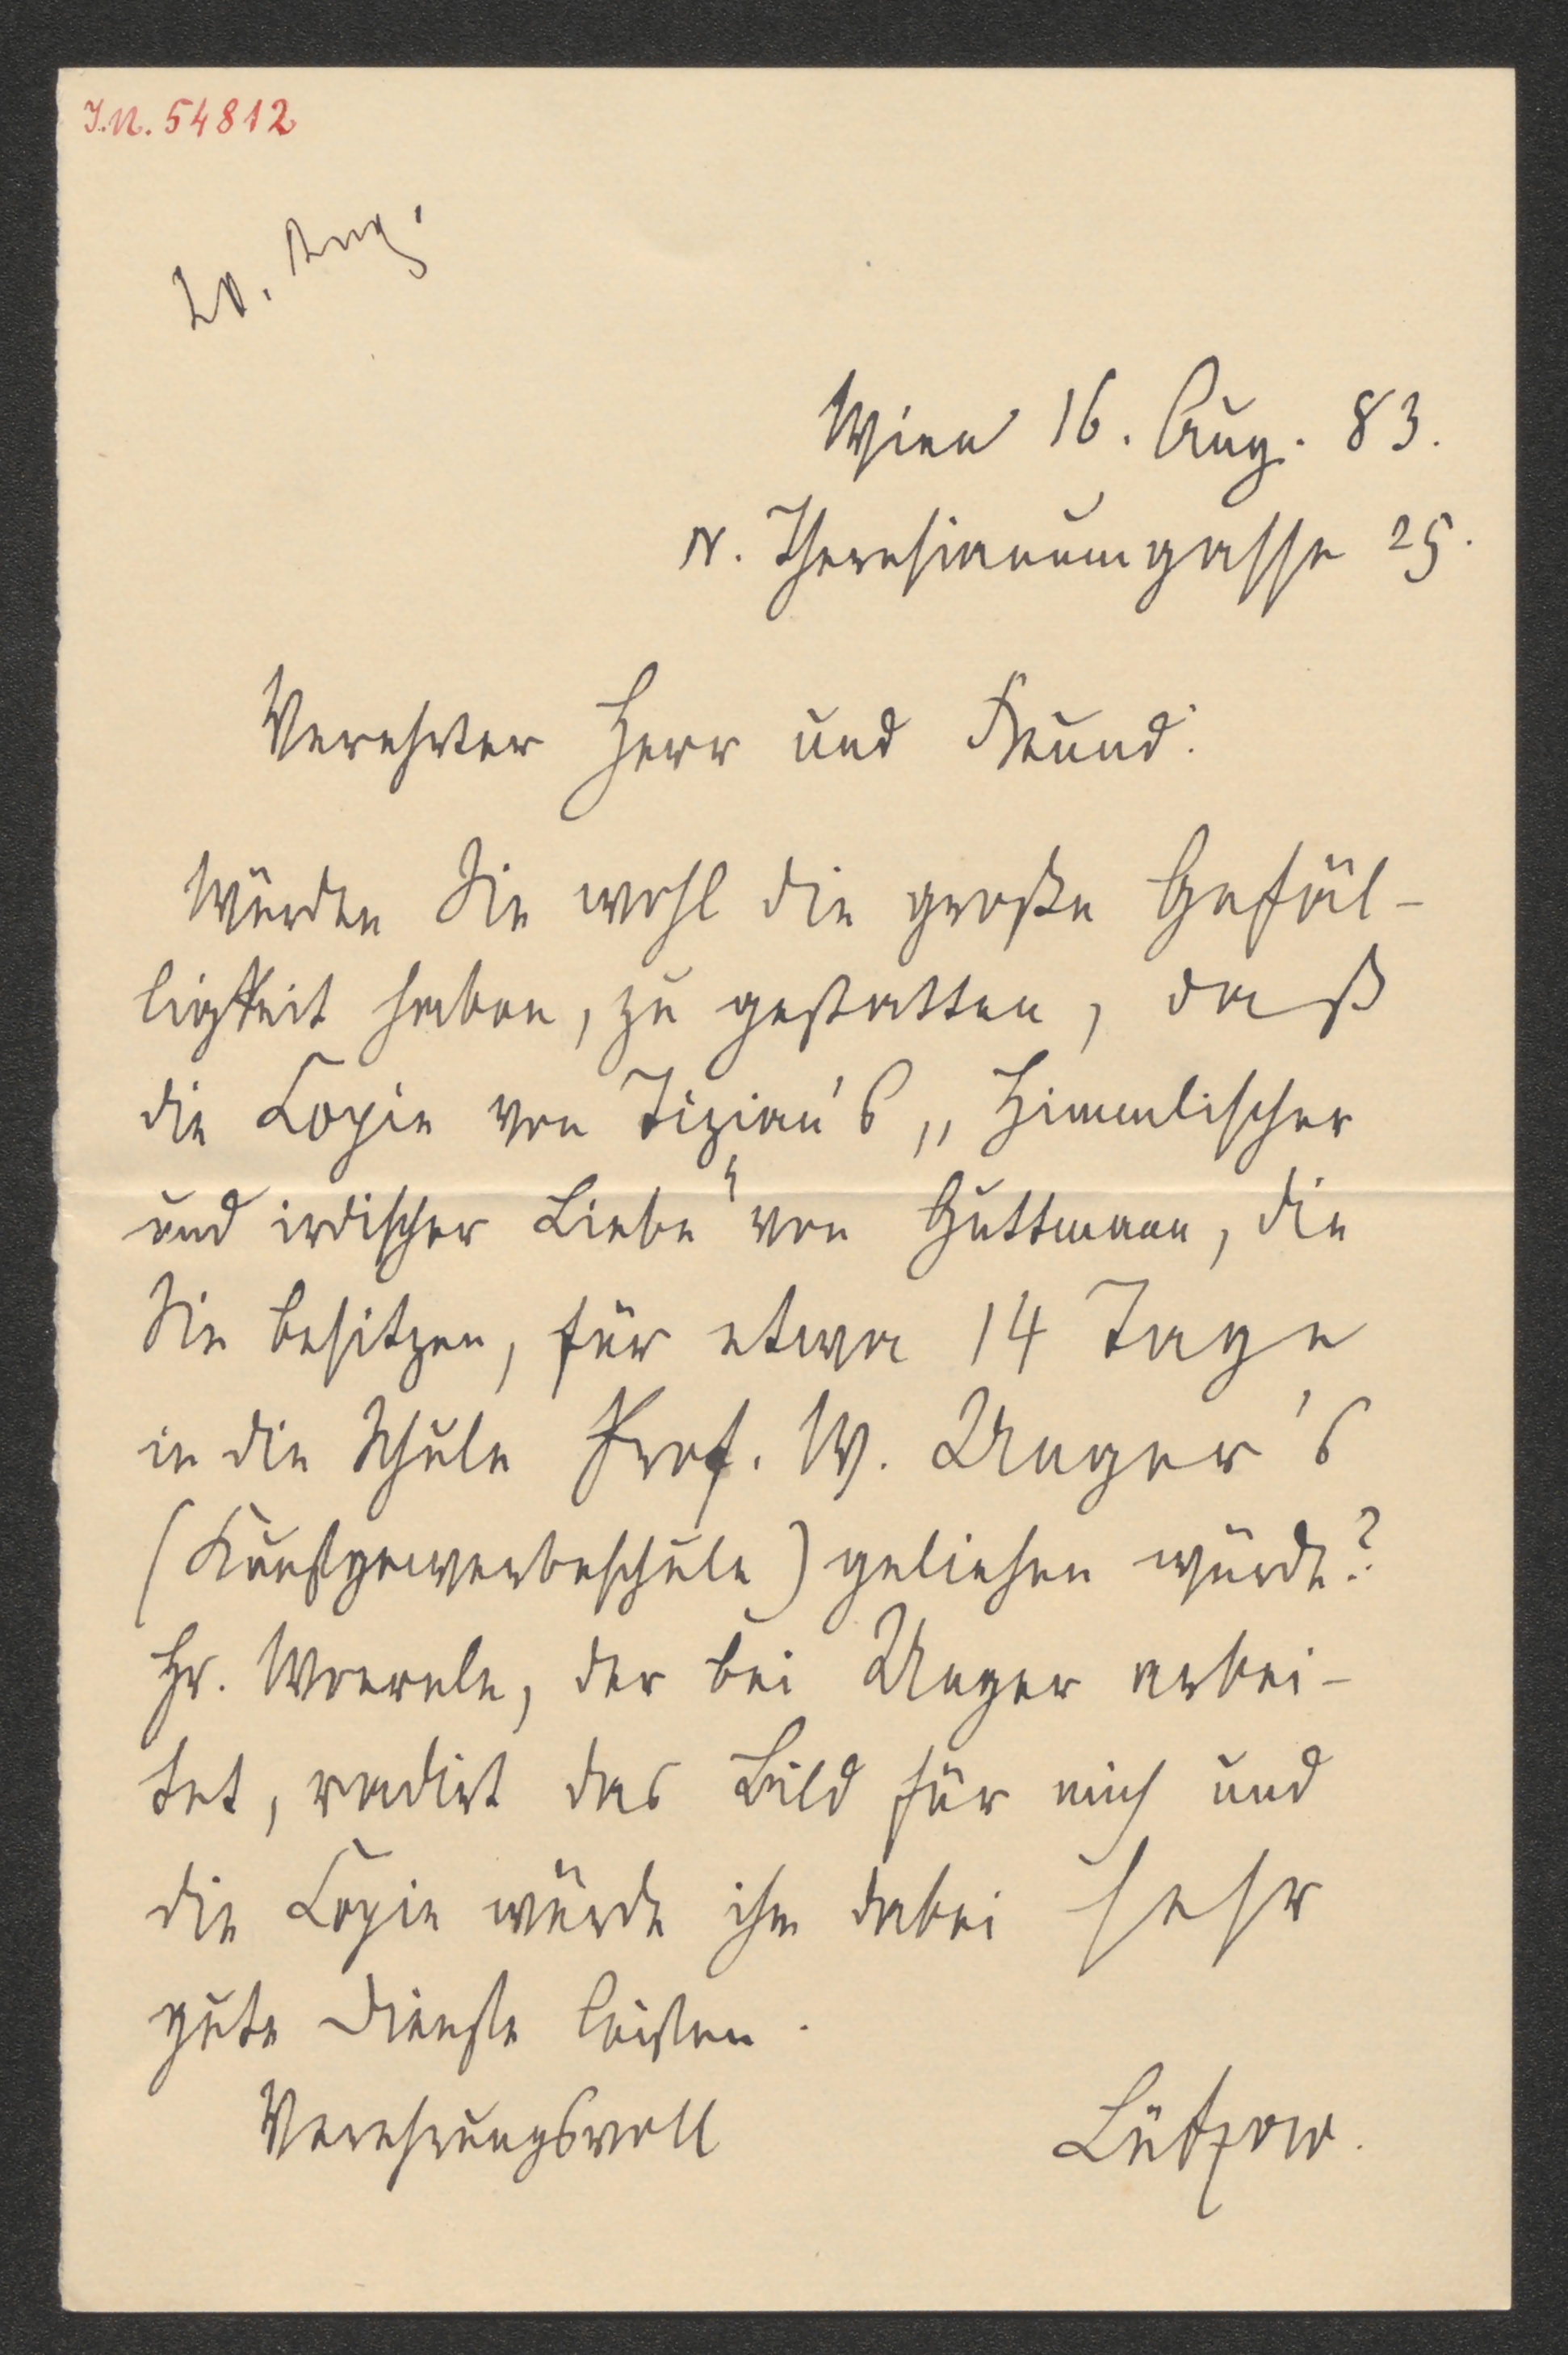 I.N. 54812
20. Aug.
Wien 16. Aug. 83.
IV. Theresianumgasse 25.
Verehrter Herr und Freund:
Würden Sie wohl die große Gefäl-
ligkeit haben, zu gestatten, daß
die Copie von Tizian's „Himmlischer
und irdischer Liebe“ von Guttmann, die
Sie besitzen, für etwa 14 Tage
in die Schule Prof. W. Unger's
(Kunstgewerbeschule) geliehen würde?
Hr. Woernle, der bei Unger arbei-
tet, radirt das Bild für mich und
die Copie würde ihm dabei sehr
gute Dienste leisten.
Verehrungsvoll Lützow.